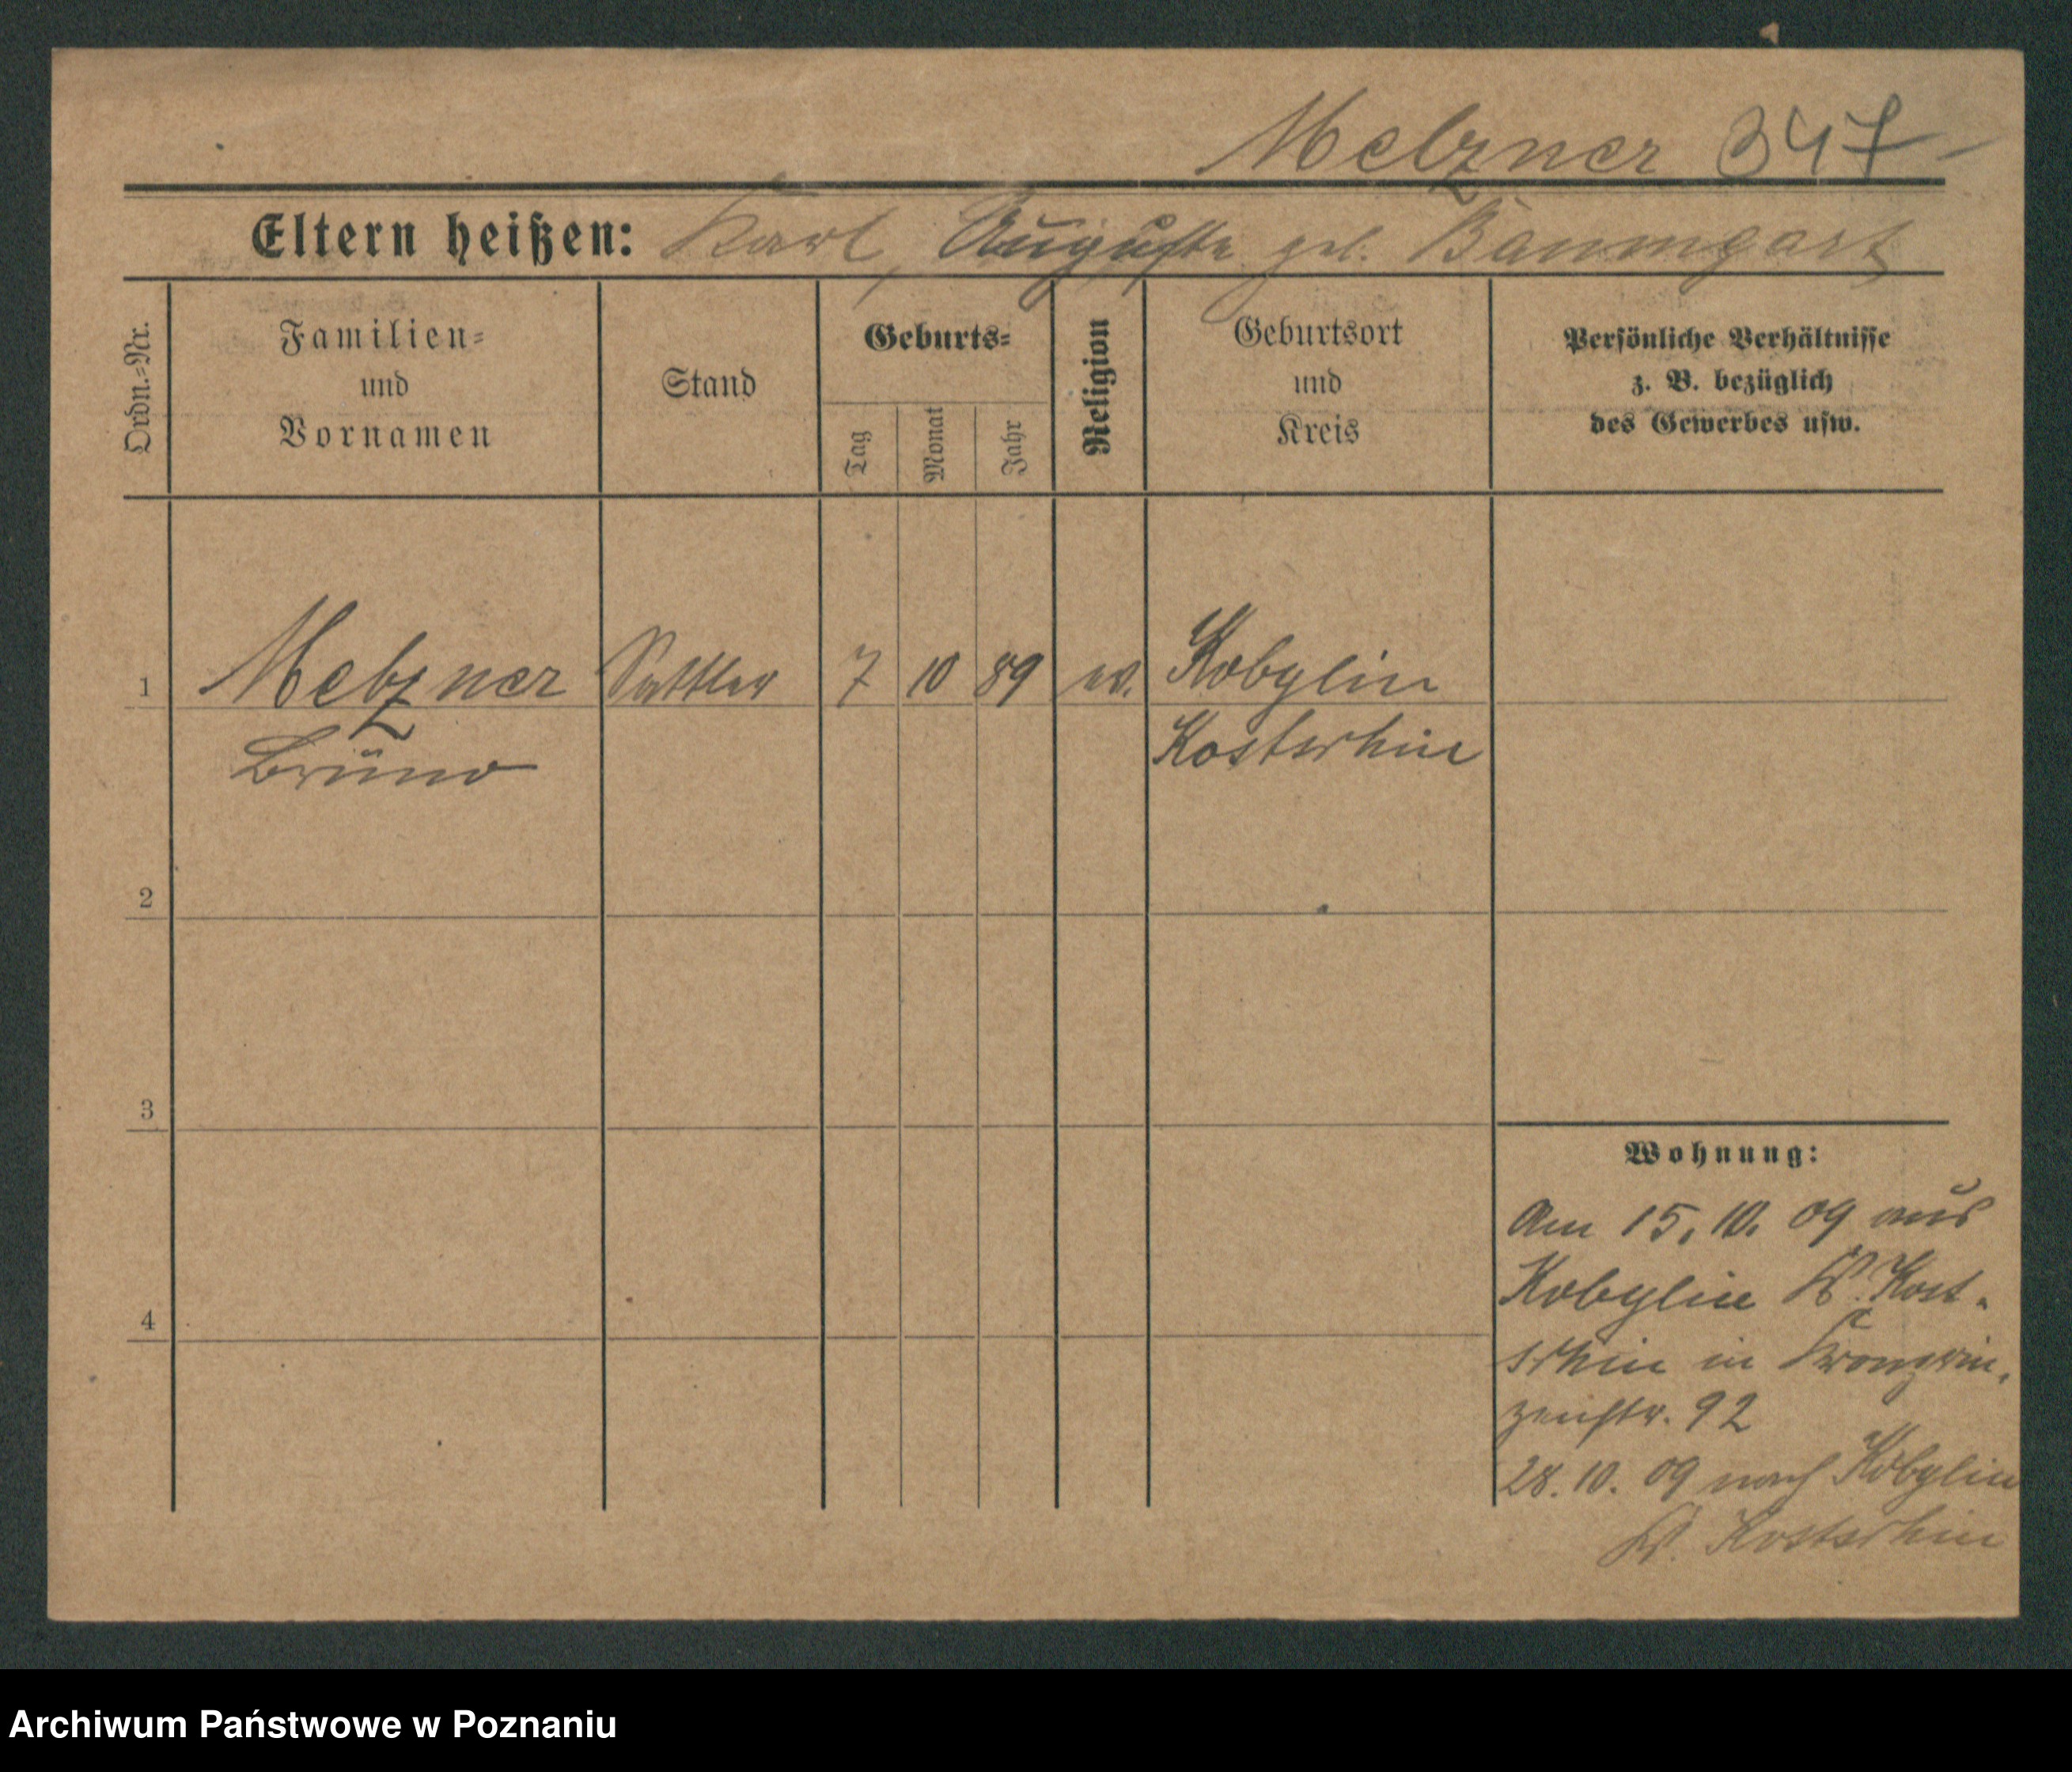 Metzner 347
Eltern heißen: Karl, Auguste geb. Baumgart
Ordn.-Nr.
Familien-
und
Vornamen
Stand
Geburts-
Tag
Monat
Jahr
Religion
Geburtsort
und
Kreis
Persönliche Verhältnisse
z. B. bezüglich
des Gewerbes usw.
1 Metzner Sattler 7 10 89 ev. Kobylin
Bruno Kostschin
2
3
4
Wohnung:
Am 15. 10. 09 aus
Kobylin Kr. Kost-
schin in Kronprin-
zenstr. 92
28. 10. 09 nach Kobylin
Kr. Kostschin
Archiwum Państwowe w Poznaniu